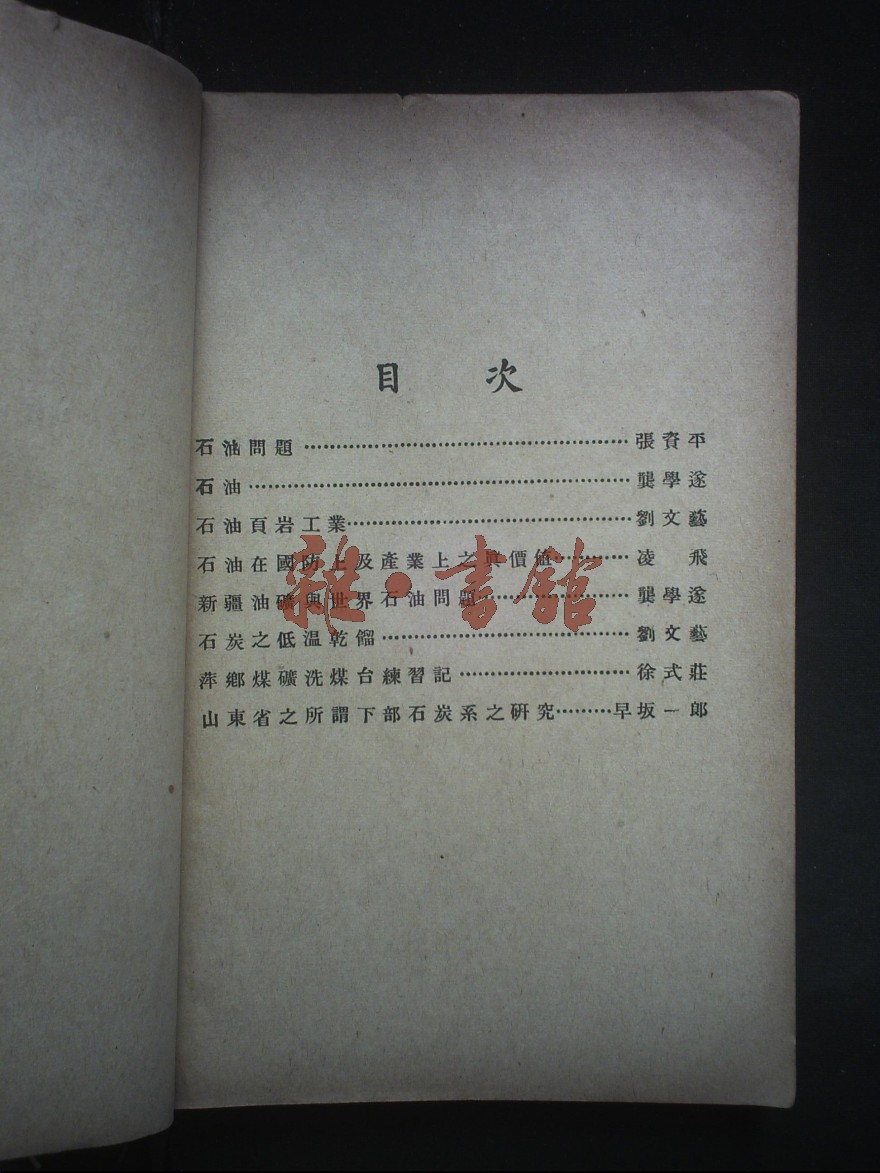 目 次
石油問題……………………………………張資平
石油……………………………………龔學遂
石油頁岩工業……………………………………劉文藝
石油在國防上及產業上之真價値…………凌 飛
新疆油礦與世界石油問題…………………龔學遂
石炭之低温乾餾……………………………劉文藝
萍鄉煤礦洗煤台練習記……………………徐式莊
山東省之所謂下部石炭系之硏究………早坂一郎
雜·書館